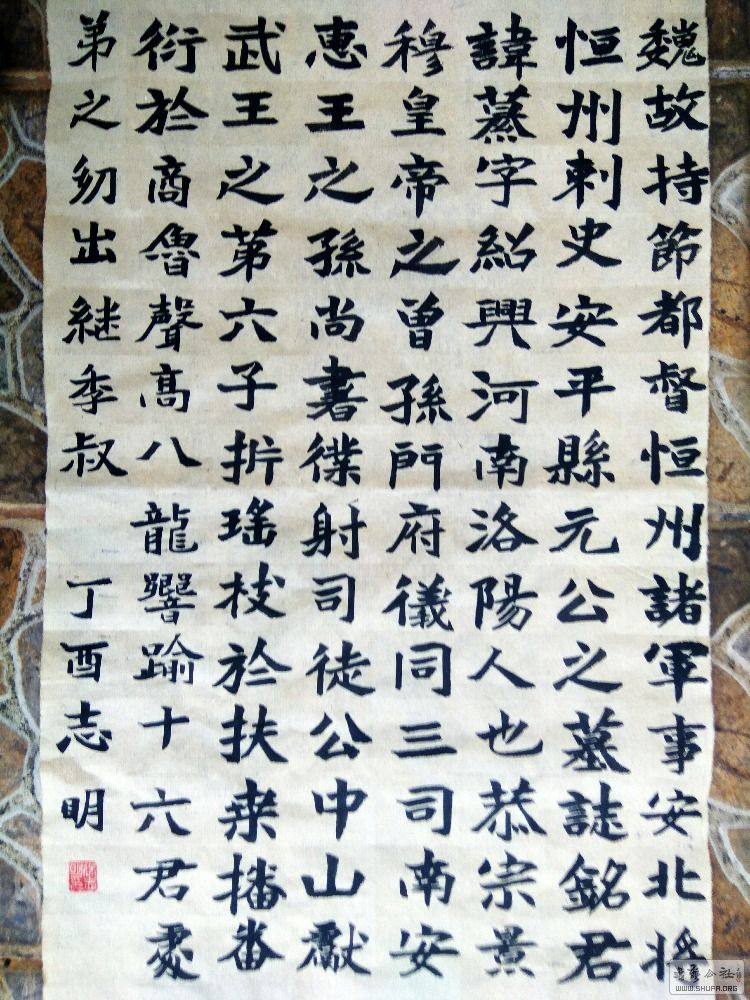 魏故持節都督恒州諸軍事安北將
恒州刺史安平縣元公之墓誌銘君
諱蒸字紹興河南洛陽人也恭宗景
穆皇帝之曾孫門府儀同三司南安
惠王之孫尚書僕射司徒公中山獻
武王之第六子折瑤枝於扶桒播番
衍於商魯聲高八龍響踰十六君處
弟之幼出継季叔 丁酉志明
公社
WWW.SHUFA.ORG